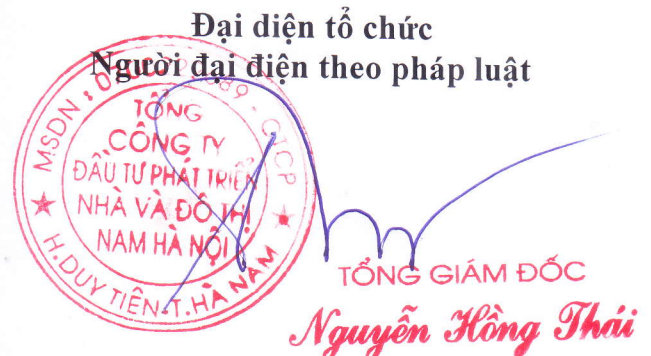 Đại diện tổ chức
Người đại diện theo pháp luật
MSDN : 0 89 - CTCP
TỔNG
CÔNG TY
ĐẦU TƯ PHÁT TRIỂN
NHÀ VÀ ĐÔ THỊ
NAM HÀ NỘI
H.DUY TIÊN-T.HÀ NAM
TỔNG GIÁM ĐỐC
Nguyễn Hồng Thái